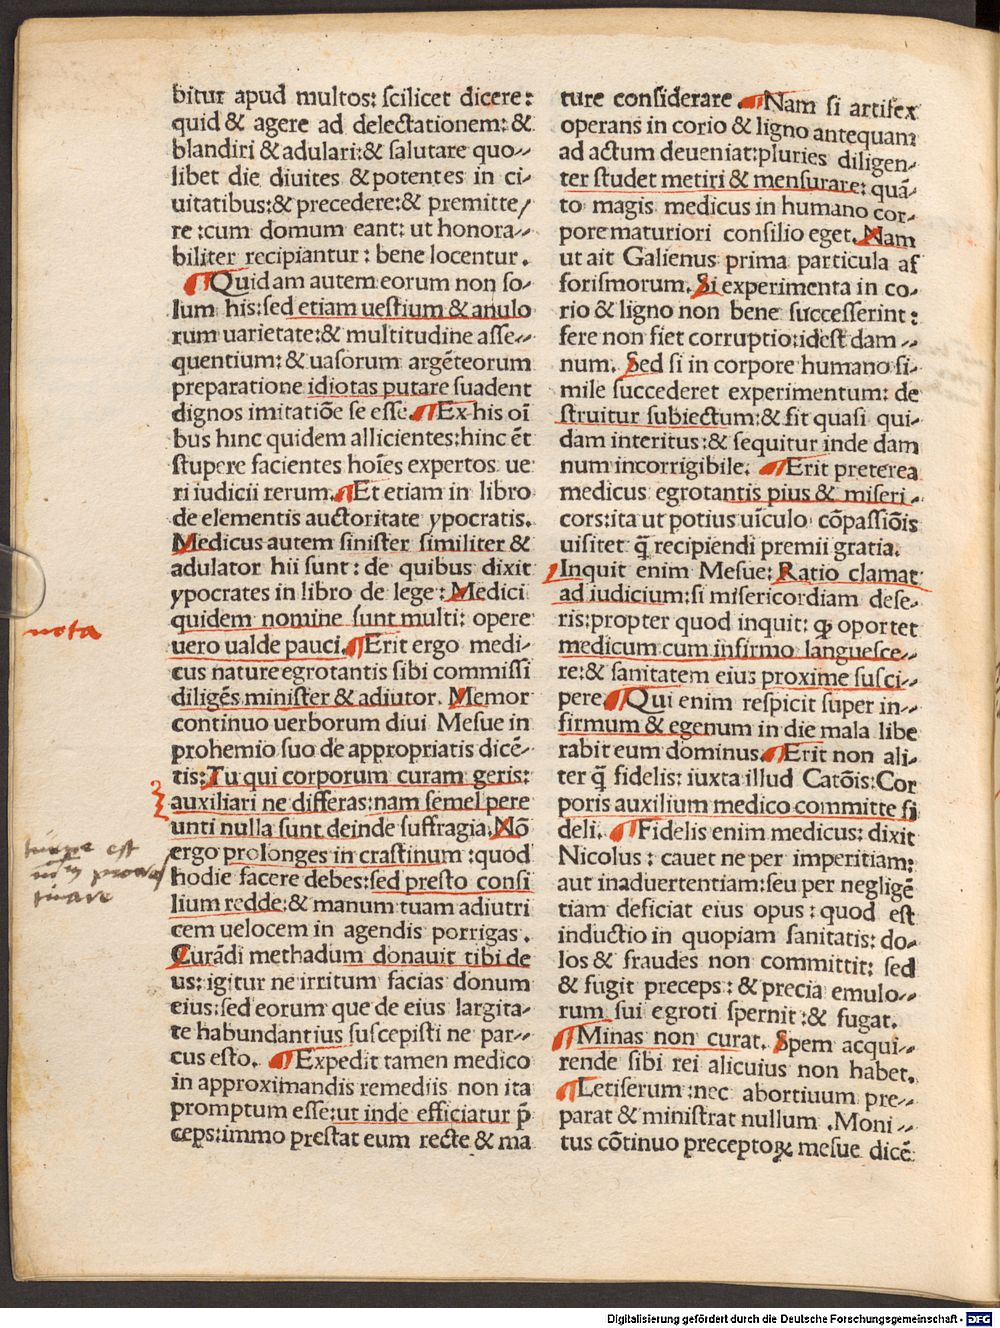 bitur apud multos: scilicet dicere:
quid & agere ad delectationem: &
blandiri & adulari: & salutare quo-
libet die diuites & potentes in ci-
uitatibus: & precedere: & premitte/
re : cum domum eant: ut honora-
biliter recipiantur : bene locentur.
¶ Quidam autem eorum non so-
lum his: sed etiam uestium & anulo
rum uarietate: & multitudine asse-
quentium: & uasorum argēteorum
preparatione idiotas putare suadent
dignos imitatiōe se esse. ¶ Ex his oī
bus hinc quidem allicientes: hinc ēt
stupere facientes hoīes expertos ue
ri iudicii rerum. ¶ Et etiam in libro
de elementis auctoritate ypocratis.
Medicus autem sinister similiter &
adulator hii sunt : de quibus dixit
ypocrates in libro de lege : Medici
quidem nomine sunt multi: opere
uero ualde pauci. ¶ Erit ergo medi-
cus nature egrotantis sibi commissi
diligēs minister & adiutor. Memor
continuo uerborum diui Mesue in
prohemio suo de appropriatis dicē-
tis: Tu qui corporum curam geris:
auxiliari ne differas: nam semel pere
unti nulla sunt deinde suffragia. Nō
ergo prolonges in crastinum : quod
hodie facere debes: sed presto consi
lium redde: & manum tuam adiutri
cem uelocem in agendis porrigas.
Curādi methadum donauit tibi de
us: igitur ne irritum facias donum
eius: sed eorum que de eius largita-
te habundantius suscepisti ne par-
cus esto. ¶ Expedit tamen medico
in approximandis remediis non ita
promptum esse: ut inde efficiatur p̄
ceps: immo prestat eum recte & ma
nota
turpe est
pro
ture considerare. ¶ Nam si artifex
operans in corio & ligno antequam
ad actum deueniat: pluries diligen-
ter studet metiri & mensurare: quā-
to magis medicus in humano cor-
pore maturiori consilio eget. Nam
ut ait Galienus prima particula af
forismorum. Si experimenta in co-
rio & ligno non bene successerint :
fere non fiet corruptio: idest dam-
num. Sed si in corpore humano si-
mile succederet experimentum: de
struitur subiectum: & fit quasi qui-
dam interitus : & sequitur inde dam
num incorrigibile. ¶ Erit preterea
medicus egrotantis pius & miseri-
cors: ita ut potius uīculo cōpassiōis
uisitet q̄ recipiendi premii gratia.
Inquit enim Mesue: Ratio clamat
ad iudicium: si misericordiam dese-
ris: propter quod inquit: ꝙ oportet
medicum cum infirmo languesce-
re: & sanitatem eius proxime susci-
pere. ¶ Qui enim respicit super in-
firmum & egenum in die mala libe
rabit eum dominus. ¶ Erit non ali-
ter q̄ fidelis: iuxta illud Catōis: Cor
poris auxilium medico committe fi
deli. ¶ Fidelis enim medicus: dixit
Nicolus : cauet ne per imperitiam:
aut inaduertentiam: seu per negligē
tiam deficiat eius opus : quod est
inductio in quopiam sanitatis: do-
los & fraudes non committit: sed
& fugit preceps : & precia emulo-
rum sui egroti spernit : & fugat.
¶ Minas non curat. Spem acqui-
rende sibi rei alicuius non habet.
¶ Letiferum : nec abortiuum pre-
parat & ministrat nullum . Moni-
tus cōtinuo preceptoꝝ mesue dicē
Digitalisierung gefördert durch die Deutsche Forschungsgemeinschaft - DFG